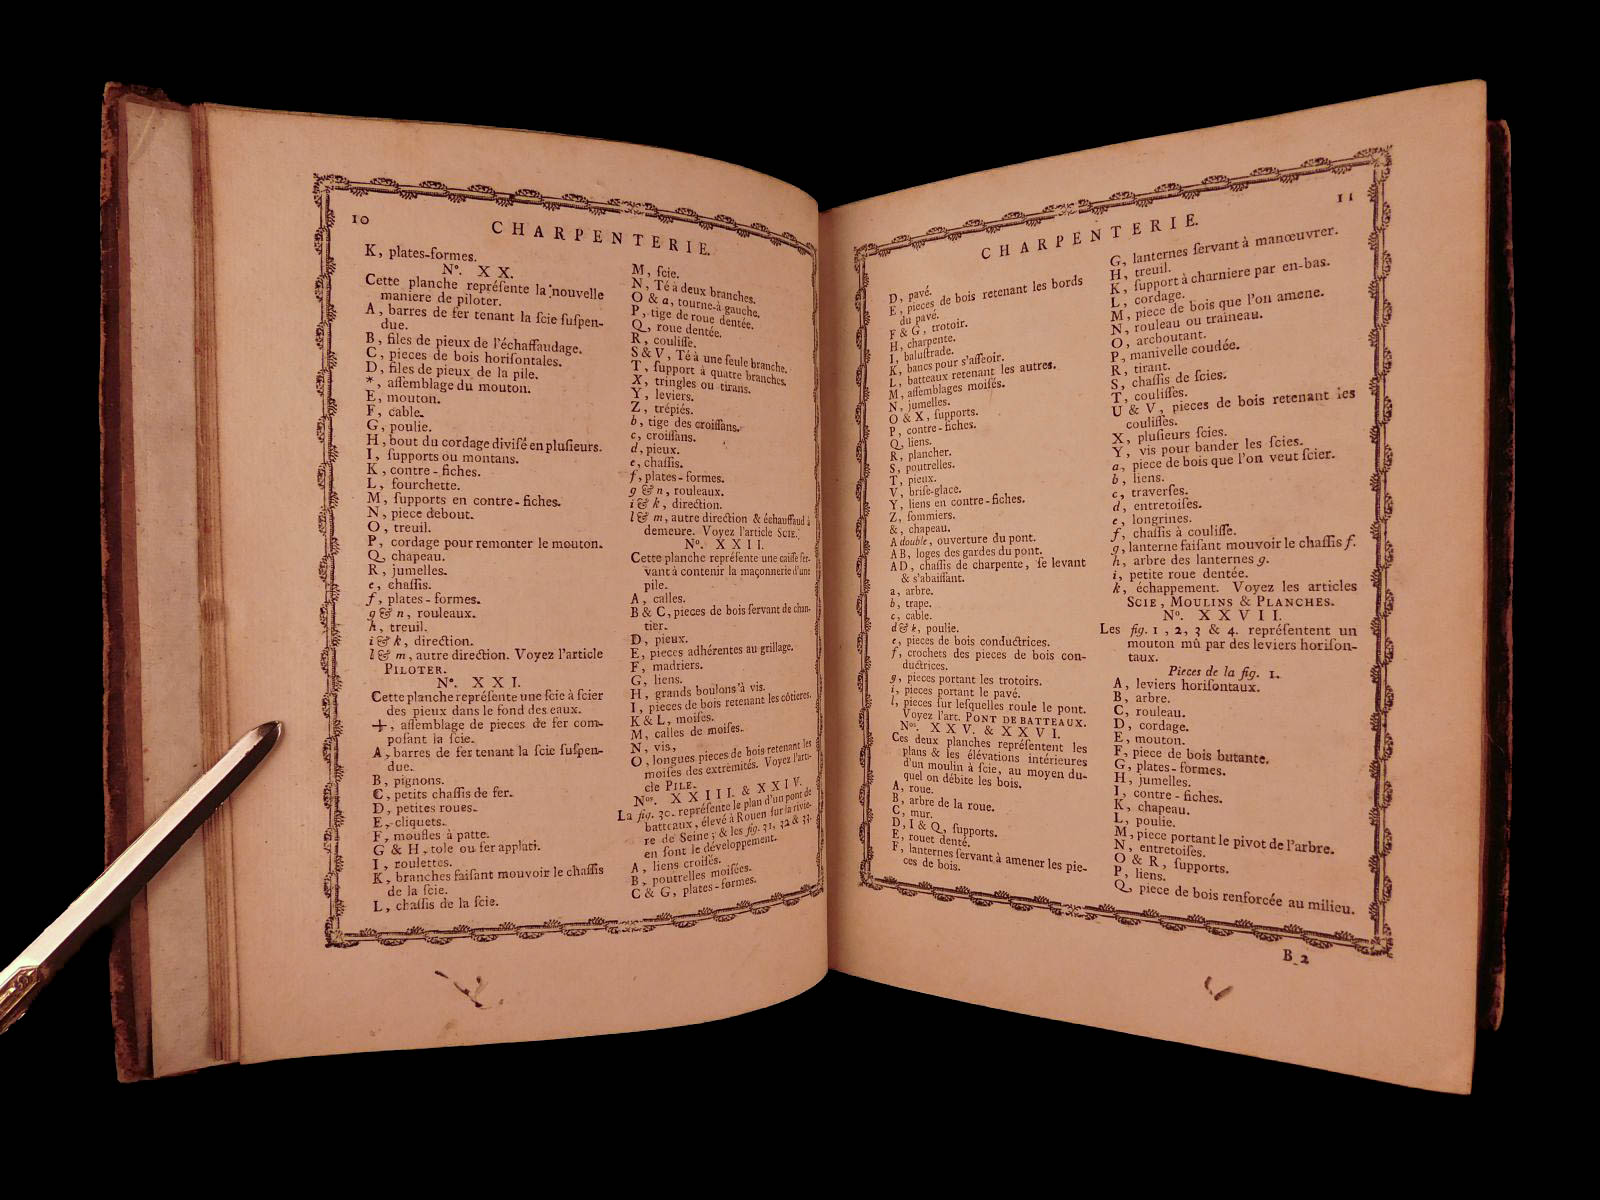 10
CHARPENTERIE.
K, plates-formes.
Nº. XX.
Cette planche repréſente la nouvelle
maniere de piloter.
A, barres de fer tenant la ſcie ſuſpen-
due.
B, files de pieux de l'échaffaudage.
C, pieces de bois horiſontales.
D, files de pieux de la pile.
*, aſſemblage du mouton.
E, mouton.
F, cable.
G, poulie.
H, bout du cordage diviſé en pluſieurs.
I, ſupports ou montans.
K, contre-fiches.
L, fourchette.
M, ſupports en contre-fiches.
N, piece debout.
O, treuil.
P, cordage pour remonter le mouton.
Q, chapeau.
R, jumelles.
e, chaſſis.
f, plates-formes.
g & n, rouleaux.
h, treuil.
i & k, direction.
l & m, autre direction. Voyez l'article
PILOTER.
Nº. XXI.
Cette planche repréſente une ſcie à ſcier
des pieux dans le fond des eaux.
+, aſſemblage de pieces de fer com-
poſant la ſcie.
A, barres de fer tenant la ſcie ſuſpen-
due.
B, pignons.
C, petits chaſſis de fer.
D, petites roues.
E, cliquets.
F, moufles à patte.
G & H, tole ou fer applati.
I, roulettes.
K, branches faiſant mouvoir le chaſſis
de la ſcie.
L, chaſſis de la ſcie.
M, ſcie.
N, Té à deux branches.
O & a, tourne-à-gauche.
P, tige de roue dentée.
Q, roue dentée.
R, couliſſe.
S & V, Té à une ſeule branche.
T, ſupport à quatre branches.
X, tringles ou tirans.
Y, leviers.
Z, trépiés.
b, tige des croiſſans.
c, croiſſans.
d, pieux.
e, chaſſis.
f, plates-formes.
g & n, rouleaux.
i & k, direction.
l & m, autre direction & échauffaud à
demeure. Voyez l'article SCIE.
Nº. XXII.
Cette planche repréſente une caiſſe ſer-
vant à contenir la maçonnerie d'une
pile.
A, calles.
B & C, pieces de bois ſervant de chan-
tier.
D, pieux.
E, pieces adhérentes au grillage.
F, madriers.
G, liens.
H, grands boulons à vis.
I, pieces de bois retenant les côtieres.
K & L, moiſes.
M, calles de moiſes.
N, vis,
O, longues pieces de bois retenant les
moiſes des extrémités. Voyez l'arti-
cle PILE.
Nos. XXIII. & XXIV.
La fig. 30. repréſente le plan d'un pont de
batteaux, élevé à Rouen ſur la rivie-
re de Seine; & les fig. 31, 32 & 33.
en ſont le développement.
A, liens croiſés.
B, poutrelles moiſées.
C & G, plates-formes.
11
CHARPENTERIE.
D, pavé.
E, pieces de bois retenant les bords
du pavé.
F & G, trotoir.
H, charpente.
I, baluſtrade.
K, bancs pour s'aſſeoir.
L, batteaux retenant les autres.
M, aſſemblages moiſés.
N, jumelles.
O & X, ſupports.
P, contre-fiches.
Q, liens.
R, plancher.
S, poutrelles.
T, pieux.
V, briſe-glace.
Y, liens en contre-fiches.
Z, ſommiers.
&, chapeau.
A double, ouverture du pont.
AB, loges des gardes du pont.
AD, chaſſis de charpente, ſe levant
& s'abaiſſant.
a, arbre.
b, trape.
c, cable.
d & k, poulie.
e, pieces de bois conductrices.
f, crochets des pieces de bois con-
ductrices.
g, pieces portant les trotoirs.
i, pieces portant le pavé.
l, pieces ſur leſquelles roule le pont.
Voyez l'art. PONT DE BATTEAUX.
Nos. XXV. & XXVI.
Ces deux planches repréſentent les
plans & les élévations intérieures
d'un moulin à ſcie, au moyen du-
quel on débite les bois.
A, roue.
B, arbre de la roue.
C, mur.
D, I & Q, ſupports.
E, rouet denté.
F, lanternes ſervant à amener les pie-
ces de bois.
G, lanternes ſervant à manœuvrer.
H, treuil.
K, ſupport à charniere par en-bas.
L, cordage.
M, piece de bois que l'on amene.
N, rouleau ou traîneau.
O, arcboutant.
P, manivelle coudée.
R, tirant.
S, chaſſis de ſcies.
T, couliſſes.
U & V, pieces de bois retenant les
couliſſes.
X, pluſieurs ſcies.
Y, vis pour bander les ſcies.
a, piece de bois que l'on veut ſcier.
b, liens.
c, traverſes.
d, entretoiſes.
e, longrines.
f, chaſſis à couliſſe.
g, lanterne faiſant mouvoir le chaſſis f.
h, arbre des lanternes g.
i, petite roue dentée.
k, échappement. Voyez les articles
SCIE, MOULINS & PLANCHES.
Nº. XXVII.
Les fig. 1, 2, 3 & 4. repréſentent un
mouton mû par des leviers horiſon-
taux.
Pieces de la fig. 1.
A, leviers horiſontaux.
B, arbre.
C, rouleau.
D, cordage.
E, mouton.
F, piece de bois butante.
G, plates-formes.
H, jumelles.
I, contre-fiches.
K, chapeau.
L, poulie.
M, piece portant le pivot de l'arbre.
N, entretoiſes.
O & R, ſupports.
P, liens.
Q, piece de bois renforcée au milieu.
B 2